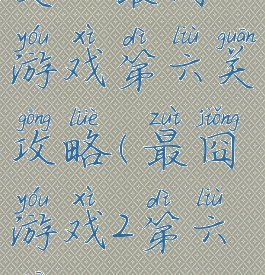 yóu xì dì liù guān
游戏第六关
gōng lüè zuì jiǒng
攻略(最囧
yóu xì dì liù
游戏2第六